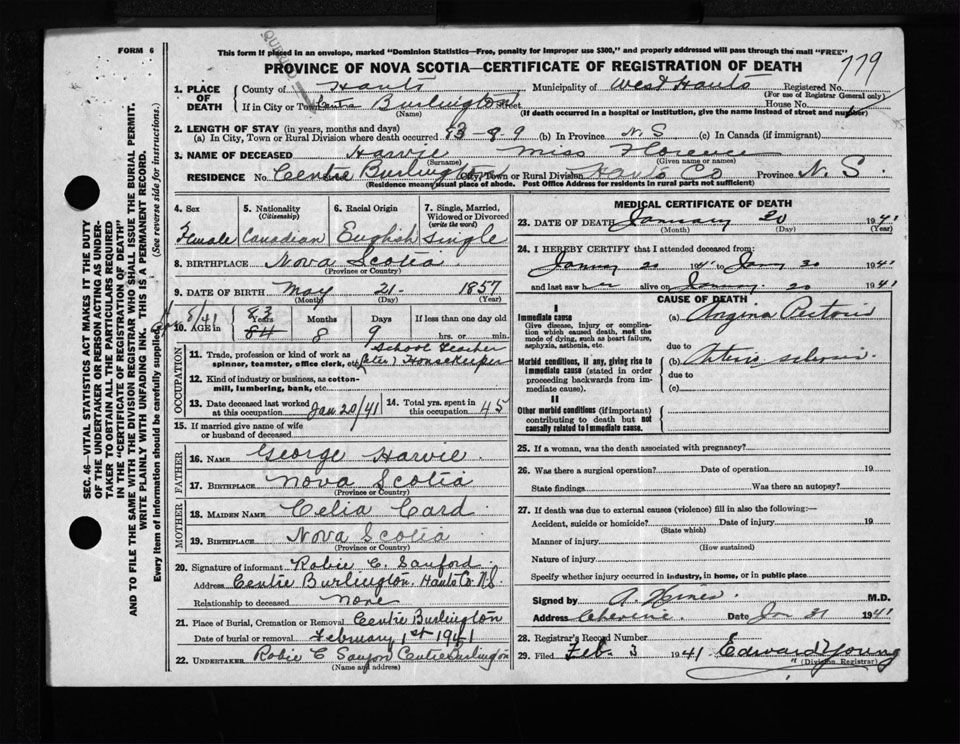 FORM 6
This form if placed in an envelope, marked "Dominion Statistics—Free, penalty for improper use $300," and properly addressed will pass through the mail "FREE"
PROVINCE OF NOVA SCOTIA—CERTIFICATE OF REGISTRATION OF DEATH
779
1. PLACE OF DEATH
County of Hants Municipality of West Hants Registered No.
(For use of Registrar General only)
If in City or Town Centre Burlington Street House No.
(Name) (If death occurred in a hospital or institution, give the name instead of street and number)
2. LENGTH OF STAY (in years, months and days)
(a) In City, Town or Rural Division where death occurred 83-8-9 (b) In Province N. S (c) In Canada (if immigrant)
3. NAME OF DECEASED Harvie Miss Florence
(Surname) (Given name or names)
RESIDENCE No. Centre Burlington City, Town or Rural Division Hants Co Province N. S.
(Residence means usual place of abode. Post Office Address for residents in rural parts not sufficient)
4. Sex Female
5. Nationality (Citizenship) Canadian
6. Racial Origin English
7. Single, Married, Widowed or Divorced (write the word) Single
8. BIRTHPLACE Nova Scotia
(Province or Country)
9. DATE OF BIRTH May 21 1857
(Month) (Day) (Year)
10. AGE in 83 84 Years 8 Months 9 Days If less than one day old
hrs. or min.
OCCUPATION
11. Trade, profession or kind of work as spinner, teamster, office clerk, etc. School Teacher (later) Housekeeper
12. Kind of industry or business, as cotton-mill, lumbering, bank, etc.
13. Date deceased last worked at this occupation Jan 20/41
14. Total yrs. spent in this occupation 45
15. If married give name of wife or husband of deceased
FATHER
16. NAME George Harvie
17. BIRTHPLACE Nova Scotia
(Province or Country)
MOTHER
18. MAIDEN NAME Celia Card
19. BIRTHPLACE Nova Scotia
(Province or Country)
20. Signature of informant Robie C. Sanford
Address Centre Burlington. Hants Co. N.S.
Relationship to deceased none
21. Place of Burial, Cremation or Removal Centre Burlington
Date of burial or removal February 1st 1941
22. UNDERTAKER Robie C Sanford Centre Burlington
(Name and address)
MEDICAL CERTIFICATE OF DEATH
23. DATE OF DEATH January 20 1941
(Month) (Day) (Year)
24. I HEREBY CERTIFY that I attended deceased from:
January 20 1941 to Jany 30 1941
and last saw her alive on January 20 1941
CAUSE OF DEATH
I
Immediate cause
Give disease, injury or complication which caused death, not the mode of dying, such as heart failure, asphyxia, asthenia, etc.
(a) Angina Pectoris
due to
Morbid conditions, if any, giving rise to immediate cause (stated in order proceeding backwards from immediate cause).
(b)
due to
(c)
II
Other morbid conditions (if important) contributing to death but not causally related to immediate cause.
25. If a woman, was the death associated with pregnancy?
26. Was there a surgical operation? Date of operation 19
State findings Was there an autopsy?
27. If death was due to external causes (violence) fill in also the following:—
Accident, suicide or homicide? Date of injury 19
(State which)
Manner of injury
(How sustained)
Nature of injury
Specify whether injury occurred in industry, in home, or in public place
Signed by M.D.
Address Cheverie Date Jan 31 1941
28. Registrar's Record Number
29. Filed Feb. 3 1941 Edward Young
(Division Registrar)
SEC. 46—VITAL STATISTICS ACT MAKES IT THE DUTY
OF THE UNDERTAKER OR PERSON ACTING AS UNDER-
TAKER TO OBTAIN ALL THE PARTICULARS REQUIRED
IN THE "CERTIFICATE OF REGISTRATION OF DEATH"
AND TO FILE THE SAME WITH THE DIVISION REGISTRAR WHO SHALL ISSUE THE BURIAL PERMIT.
WRITE PLAINLY WITH UNFADING INK. THIS IS A PERMANENT RECORD.
Every item of Information should be carefully supplied. (See reverse side for instructions.)